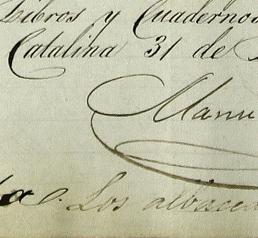 Libros y Cuadernos
Catalina 31 de
Manu
Los albacea